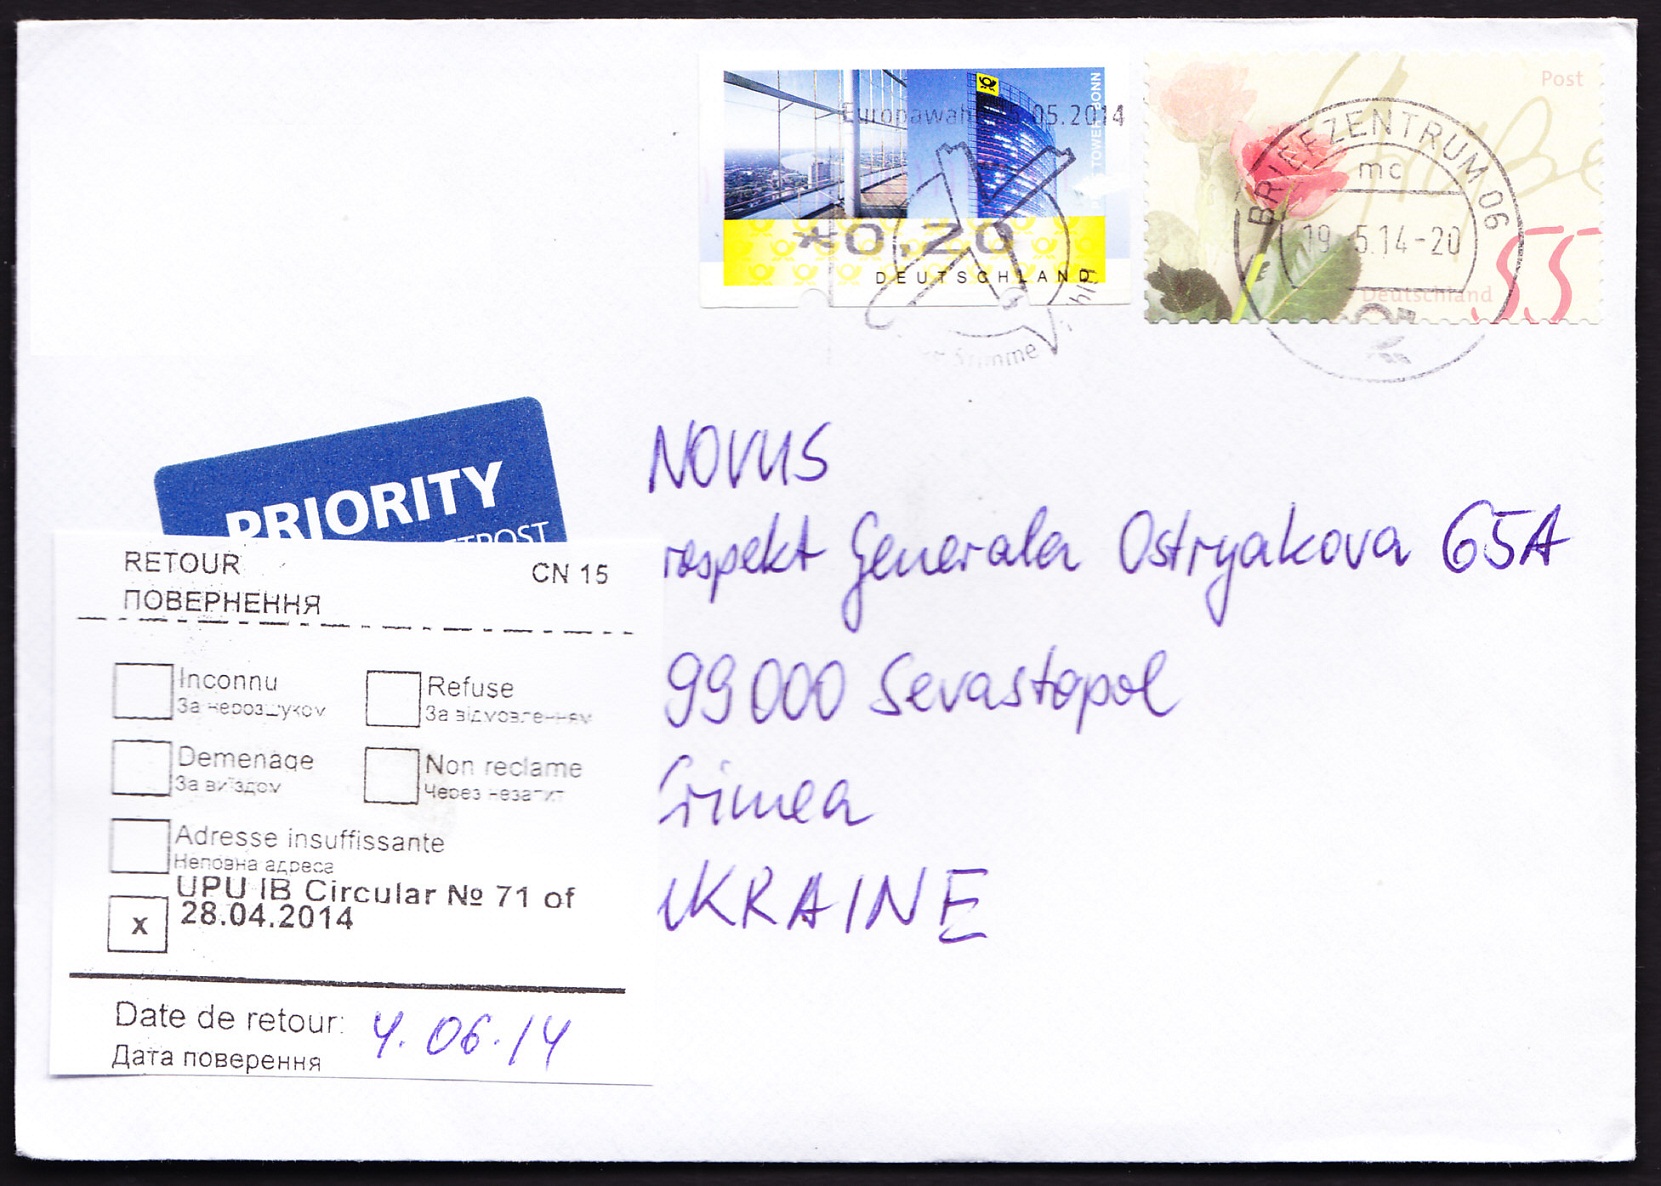 Europawahl 25.05.2014
TOWER BONN
*0,20
DEUTSCHLAND
Stimme
Post
BRIEFZENTRUM 06
mc
19.5.14-20
Deutschland
55
PRIORITY
NOVUS
rospekt Generala Ostryakova 65A
99000 Sevastopol
Crimea
UKRAINE
RETOUR
CN 15
ПОВЕРНЕННЯ
Inconnu
За нерозшуком
Refuse
За відмовленням
Demenage
За виїздом
Non reclame
Через незапит
Adresse insuffissante
Неповна адреса
UPU IB Circular № 71 of
x 28.04.2014
Date de retour: 4.06.14
Дата поверення